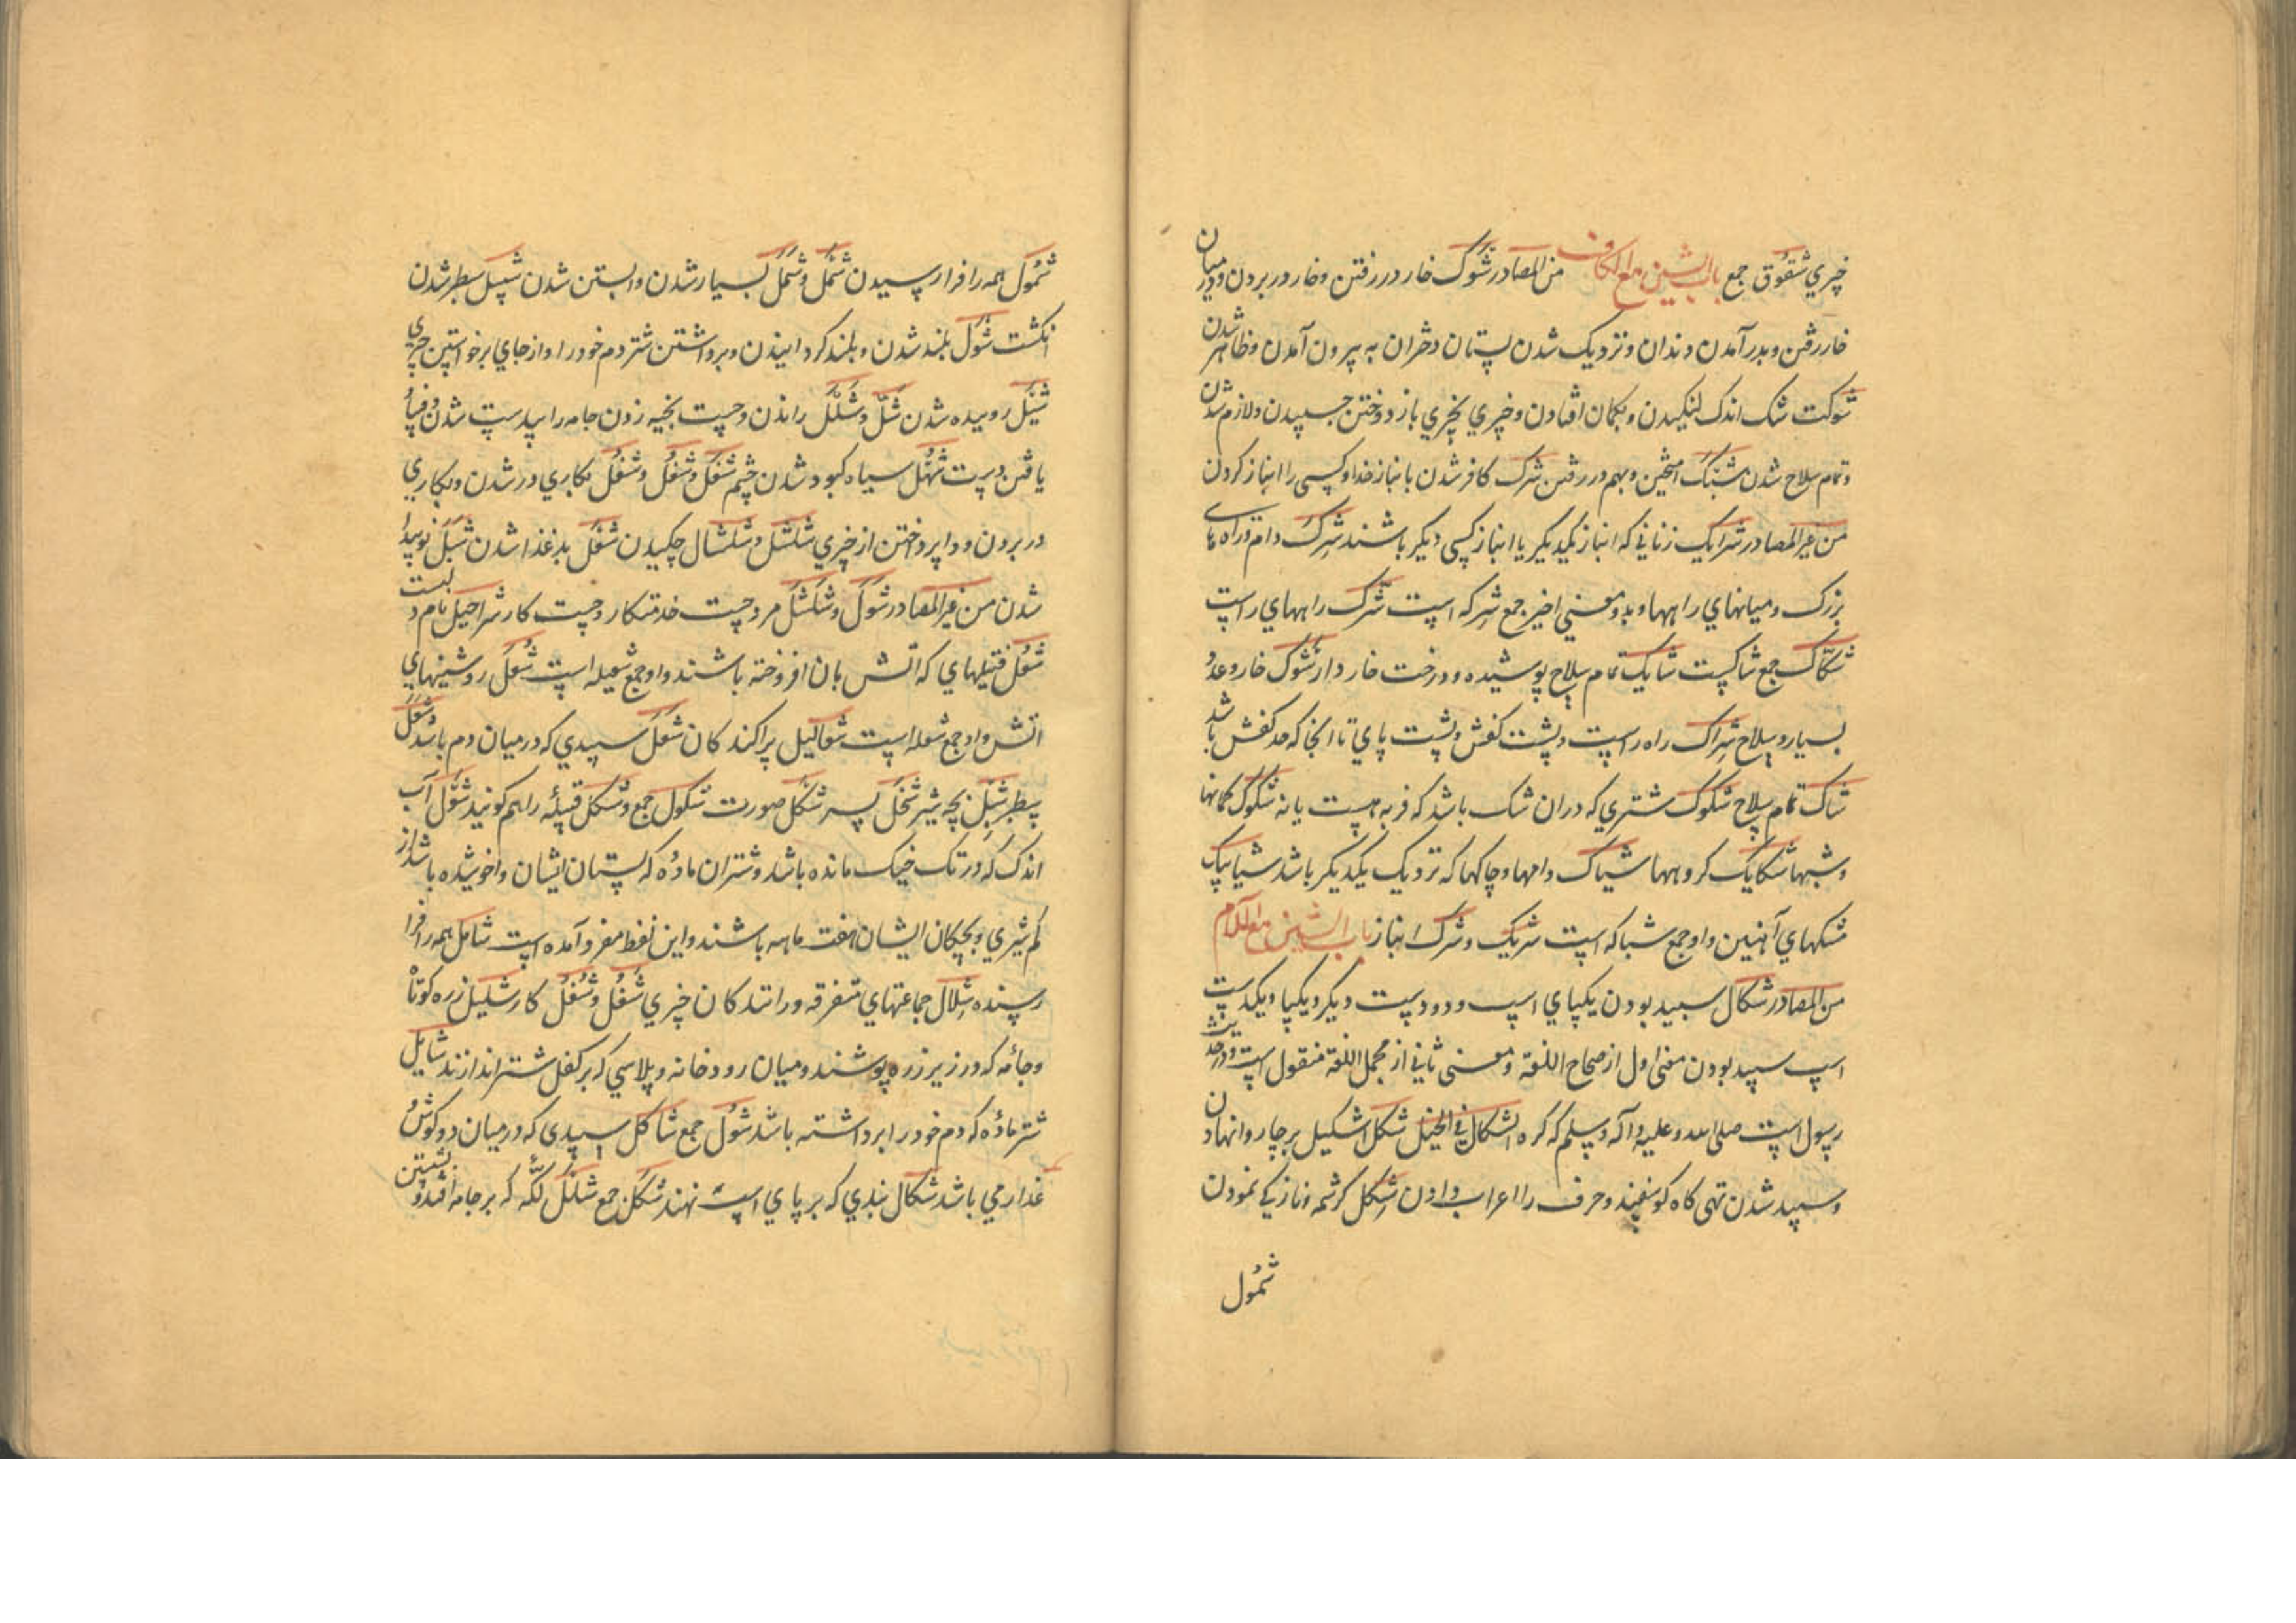 چیزي شقوق جمع باب الشین مع الکاف من المصادر شوک خار در رفتن و خار در بردن و در میان
خار رفتن و بدر آمدن دندان و نزدیک شدن پستان دختران به بیرون آمدن و ظاهر شدن
شوکت شک اندک لنگیدن و بگمان افتادن و چیزي بچیزي باز دوختن چسپیدن و لازم شدن
و تمام سلاح شدن شبک آمیختن و بهم در رفتن شرک کافر شدن با نباز خدا و کسی را انباز کردن
من غیر المصادر شرایک زنانی که انباز یکدیگر یا انباز کسی دیگر باشند شرک دام و راه هاء
بزرک و میانهاي راهها و بدو معنی اخیر جمع شرکه است شرک راههاي راست
شکاک جمع شاکست شایک تمام سلاح پوشیده و درخت خار دار شوک خار و عدد
بسیار و سلاح شراک راه راست و پشت کفش و پشت پاي تا آنجا که حد کفش باشد
شاک تمام سلاح شکوک شتري که در ان شک باشد که فربه است یا نه شکوک گمانها
و شبهها شکایک گروهها شیاک دامها و چاهها که نزدیک یکدیگر باشد شبابیک
مشبکهاي آهنین و او جمع شباکه است شریک و شرک انباز باب الشین مع اللام
من المصادر شکال سپید بودن یکپاي اسپ و دو دست دیگر و یکپا و یکدست
اسپ سپید بودن معنی اول از صحاح اللغة و معنی ثانی از مجمل اللغة منقول است و در حدیث
رسول است صلی الله و علیه و آله و سلم که کره الشکال فی الخیل شکل اشکیل بر چاروا نهادن
و سپید شدن تهی کاه کوسفند و حرف را اعراب دادن شکل کرشمه و ناز کي نمودن
شمول
شمول همه را فرا رسیدن شمل و شمل بسیار شدن و ابستن شدن شسل سطبر شدن
انکشت شول بلند شدن و بلند کردانیدن و برداشتن شتر دم خود را و از جاي برخواستن چیزي
شیل روییده شدن شل و شلل راندن و چست بخیه زدن جامه را بید ست شدن و فساد
یافتن دست شهل سیاه کبود شدن چشم شغل و شغل و شغل بکاري در شدن و بکاري
در بردن و وا پرداختن از چیزي شلشل و شلشال چکیدن شغل بد غذا شدن شبل نو پیدا
شدن من غیر المصادر شول و شلشل مرد چست خدمتکار و چست کار شراحیل نام دبست
شعل فتیلهاي که آتش بان افروخته باشند و او جمع شعیله است شعل روشنیهاي
آتش و او جمع شعله است شعالیل پراکندکان شعل سپیدي که در میان دم باشد و شثل
سطبر شبل بچه شیر شخل پسر شکل صورت شکول جمع و شکل قبیله را هم کویند شول آب
اندک که در تک خیک مانده باشد و شتران ماده که پستان ایشان واخوشیده باشد از
کم شیري و بچکان ایشان هفت ماهه باشند و این لفظ مفرد آمده است شامل همه را فرا
رسنده شلال جماعتهاي متفرقه و رانندکان چیزي شغل و شغل کار شلیل زره کوتاه
و جامه که در زیر زره پوشند و میان رودخانه و پلاسي که بر کفل شتر اندازند شایل
شتر ماده که دم خود را برداشته باشد شول جمع شاکل سپیدی که در میان دو کوش
عذار مي باشد شکال بندي که بر پاي اسپ نهند شکل جمع شلل لکه که بر جامه افتد و بشستن